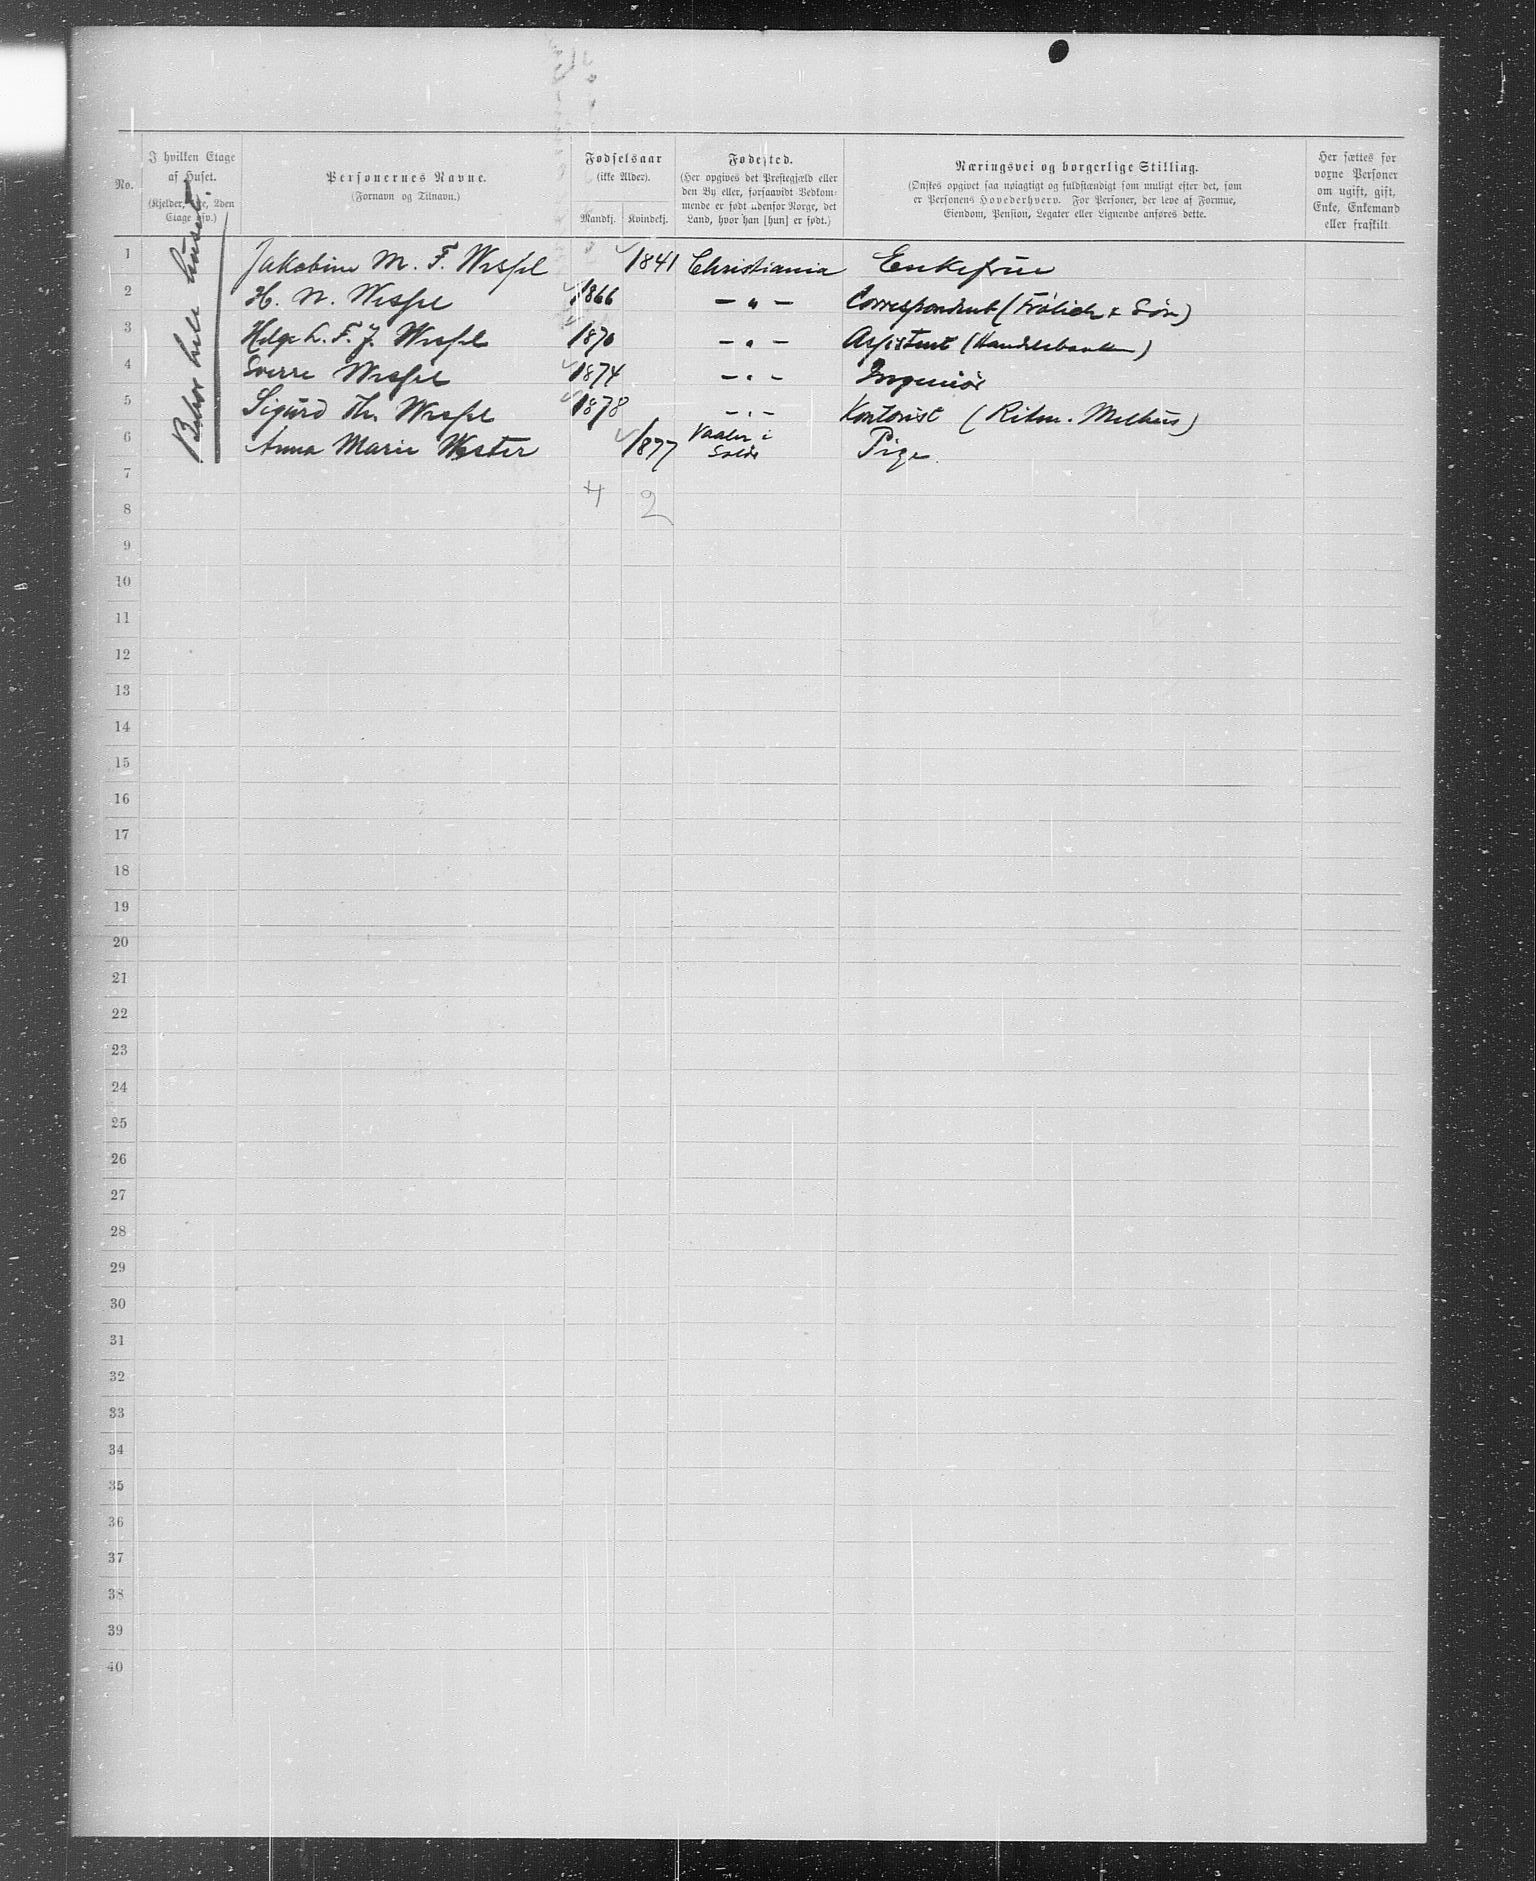 No.
I hvilken Etage af Huset.
(Kjelder, 1ste, 2den Etage osv.)
Personernes Navne.
(Fornavn og Tilnavn.)
Fødselsaar
(ikke Alder).
Mandkj. Kvindekj.
Fødested.
(Her opgives det Prestegjæld eller
den By eller, forsaavidt Vedkom-
mende er født udenfor Norge, det
Land, hvor han [hun] er født.)
Næringsvei og borgerlige Stilling.
(Ønskes opgivet saa nøiagtigt og fuldstændigt som muligt efter det, som
er Personens Hovederhverv. For Personer, der leve af Formue,
Eiendom, Pension, Legater eller Lignende anføres dette.
Her sættes for
voxne Personer
om ugift, gift,
Enke, Enkemand
eller fraskilt
Bebor hele huset
1 Jakobine M. F. Wessel 1841 Christiania Enkefrue
2 H. N. Wessel 1866 — " — Correspondent (Frölich & Søn)
3 Helge L. F. J. Wessel 1870 — " — Assistent (Handelsbanken)
4 Sverre Wessel 1874 — " — Ingeniør
5 Sigurd Th. Wessel 1878 — " — Kontorist (Ritm. Melhus)
6 Anna Marie Wester 1877 Vaaler i Solør Pige.
7
8 4 2
9
10
11
12
13
14
15
16
17
18
19
20
21
22
23
24
25
26
27
28
29
30
31
32
33
34
35
36
37
38
39
40